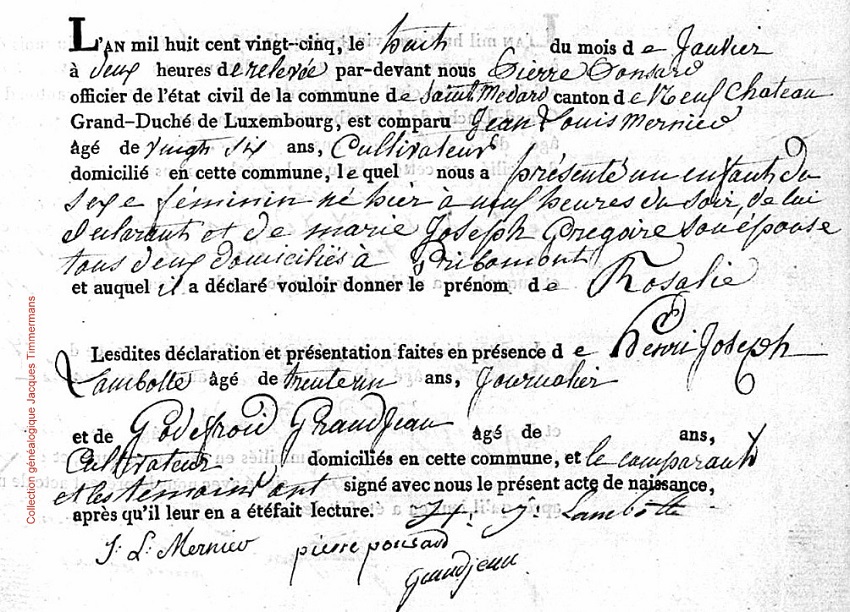 L'AN mil huit cent vingt-cinq, le huit du mois de Janvier
à deux heures de relevée par-devant nous Pierre Ponsard
officier de l'état civil de la commune de Saint Medard canton de Neuf Chateau
Grand-Duché de Luxembourg, est comparu Jean Louis Mernier
âgé de vingt six ans, Cultivateur
domicilié en cette commune, lequel nous a présenté un enfant du
sexe féminin né hier à neuf heures du soir, de lui
declarant et de marie Joseph Gregoire son épouse
tous deux domiciliés à Pribomont
et auquel il a déclaré vouloir donner le prénom de Rosalie
Lesdites déclaration et présentation faites en présence de Henri Joseph
Lambotte âgé de trente un ans, Journalier
et de Godefroid Grandjean âgé de ans,
Cultivateur domiciliés en cette commune, et le comparant
et les temoins ont signé avec nous le présent acte de naissance,
après qu'il leur en a étéfait lecture. H. J. Lambotte
J. L. Mernier pierre ponsard
Grandjean
Collection généalogique Jacques Timmermans